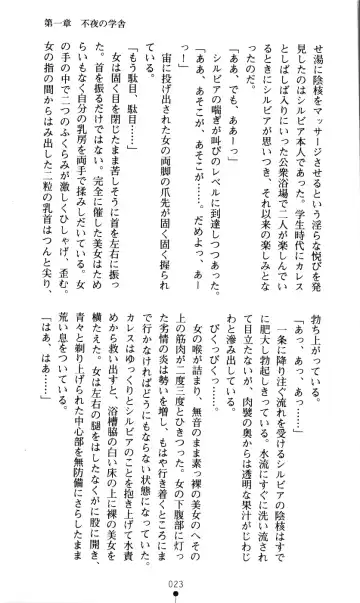 第一章　不夜の学舎
せ湯に陰核をマッサージさせるという淫らな悦びを発
見したのはシルビア本人であった。学生時代にカレス
としばしば入りにいった公衆浴場で二人が楽しんでい
るときにシルビアが思いつき、それ以来の楽しみとな
ったのだ。
「ああ、でも、ああーっ」
シルビアの喘ぎが叫びのレベルに到達しつつあった。
「ああ、あそこが、あそこが……。だめよっ、あー
っ」
宙に投げ出された女の両脚の爪先が固く固く握られ
ている。
「もう駄目、駄目……」
女は固く目を閉じたまま苦しそうに首を左右に振っ
た。首を振るだけではない。完全に催した美女はため
らいもなく自分の乳房を両手で揉みしだいている。女
の手の中で二つのふくらみが激しくひしゃげ、歪む。
女の指の間からはみ出した二粒の乳首はつんと尖り、
勃ち上がっている。
「あっ、あっ、あっ……」
一条に降り注ぐ流れを受けるシルビアの陰核はすで
に肥大し勃起しきっている。水流にすぐに洗い流され
て目立たないが、肉襞の奥からは透明な果汁がじわじ
わと滲み出している。
びくっびくっ……。
女の喉が詰まり、無音のまま素っ裸の美女のへその
上の筋肉が二度三度とひきつった。女の下腹部に灯っ
た劣情の炎は勢いを増し、もはや行き着くところま
で行かなければどうにもならない状態になっている。
カレスはゆっくりとシルビアのことを抱き上げて水責
めから救い出すと、浴槽脇の白い床の上に裸の美女を
横たえた。女は左右の腿をはしたなくがに股に開き、
青々と剃り上げられた中心部を無防備にさらしたまま
荒い息をついている。
「はあ、はあ……」
023